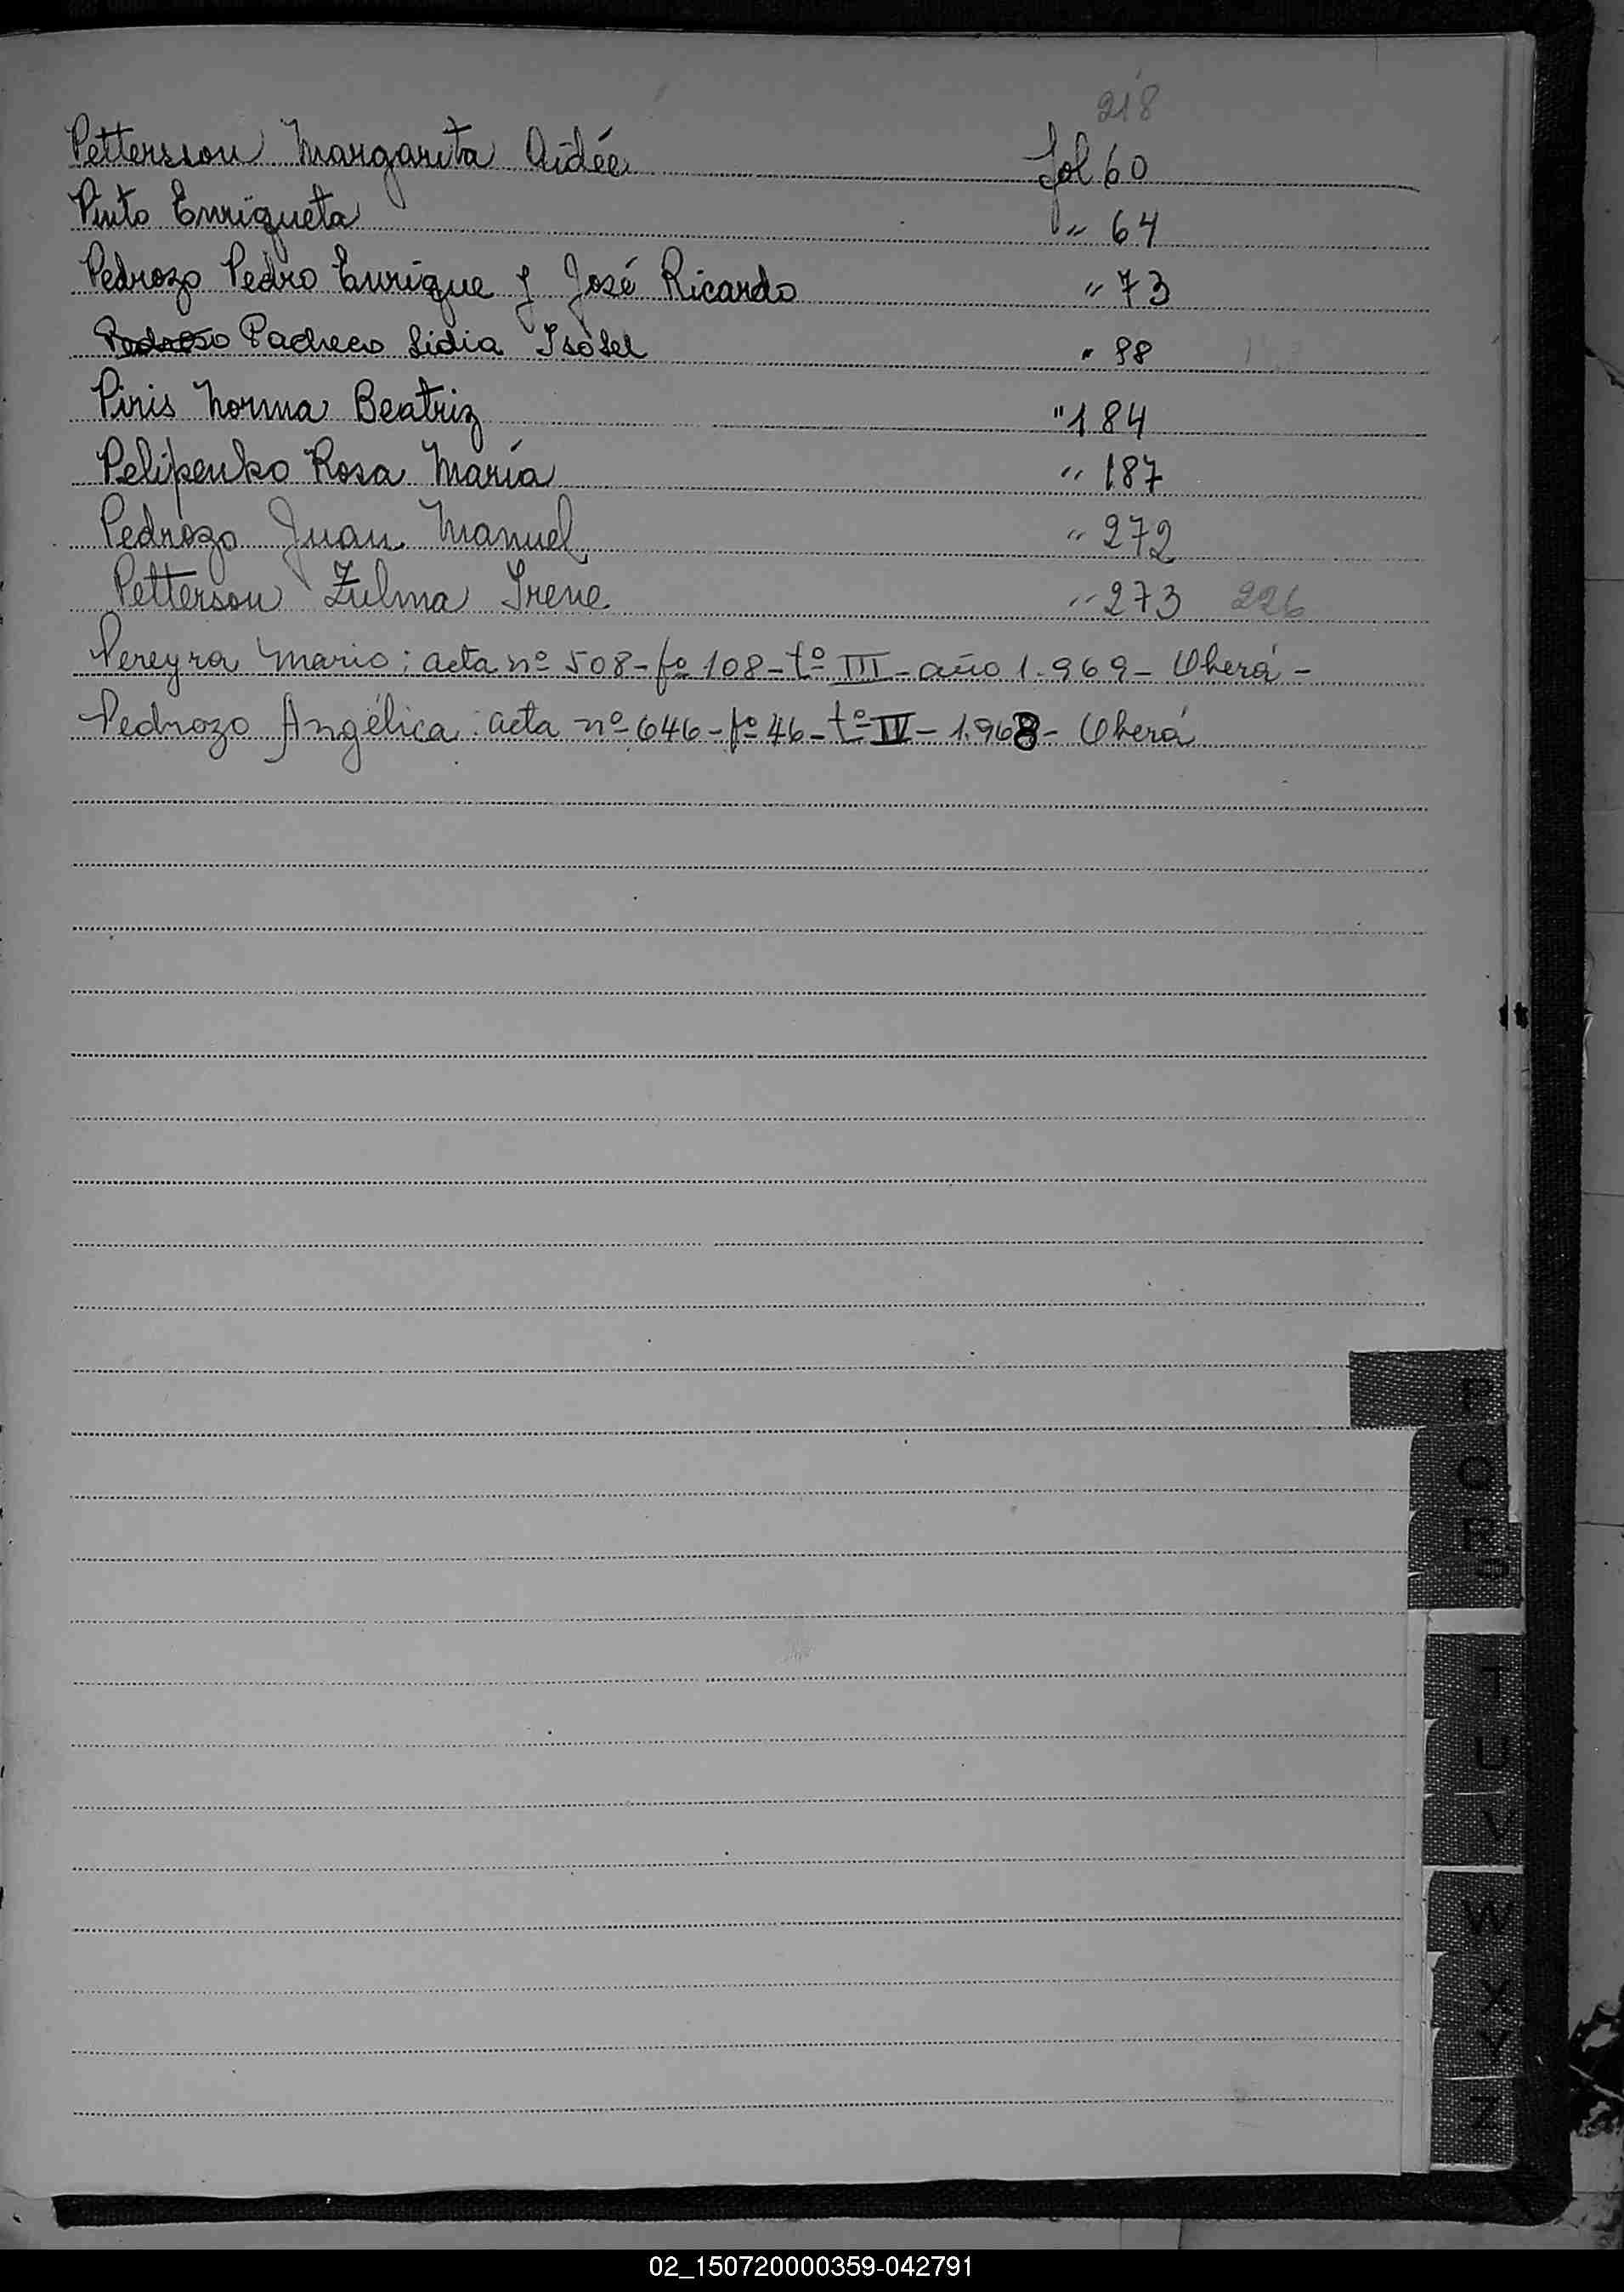 218
Pettersson Margarita Aidée Fol 60
Pinto Enriqueta " 64
Pedrozo Pedro Enrique y José Ricardo " 73
Pedroso Pacheco Lidia Isabel " 98
Piris Norma Beatriz " 184
Pelipenko Rosa María " 187
Pedrozo Juan Manuel " 272
Petterson Zulma Irene " 273 226
Pereyra Mario: acta nº 508-fº 108-tº III-año 1.969- Oberá-
Pedrozo Angélica: acta nº 646-fº 46-tº IV-1.968- Oberá
P
Q
R
S
T
U
V
W
X
Y
Z
02_150720000359-042791